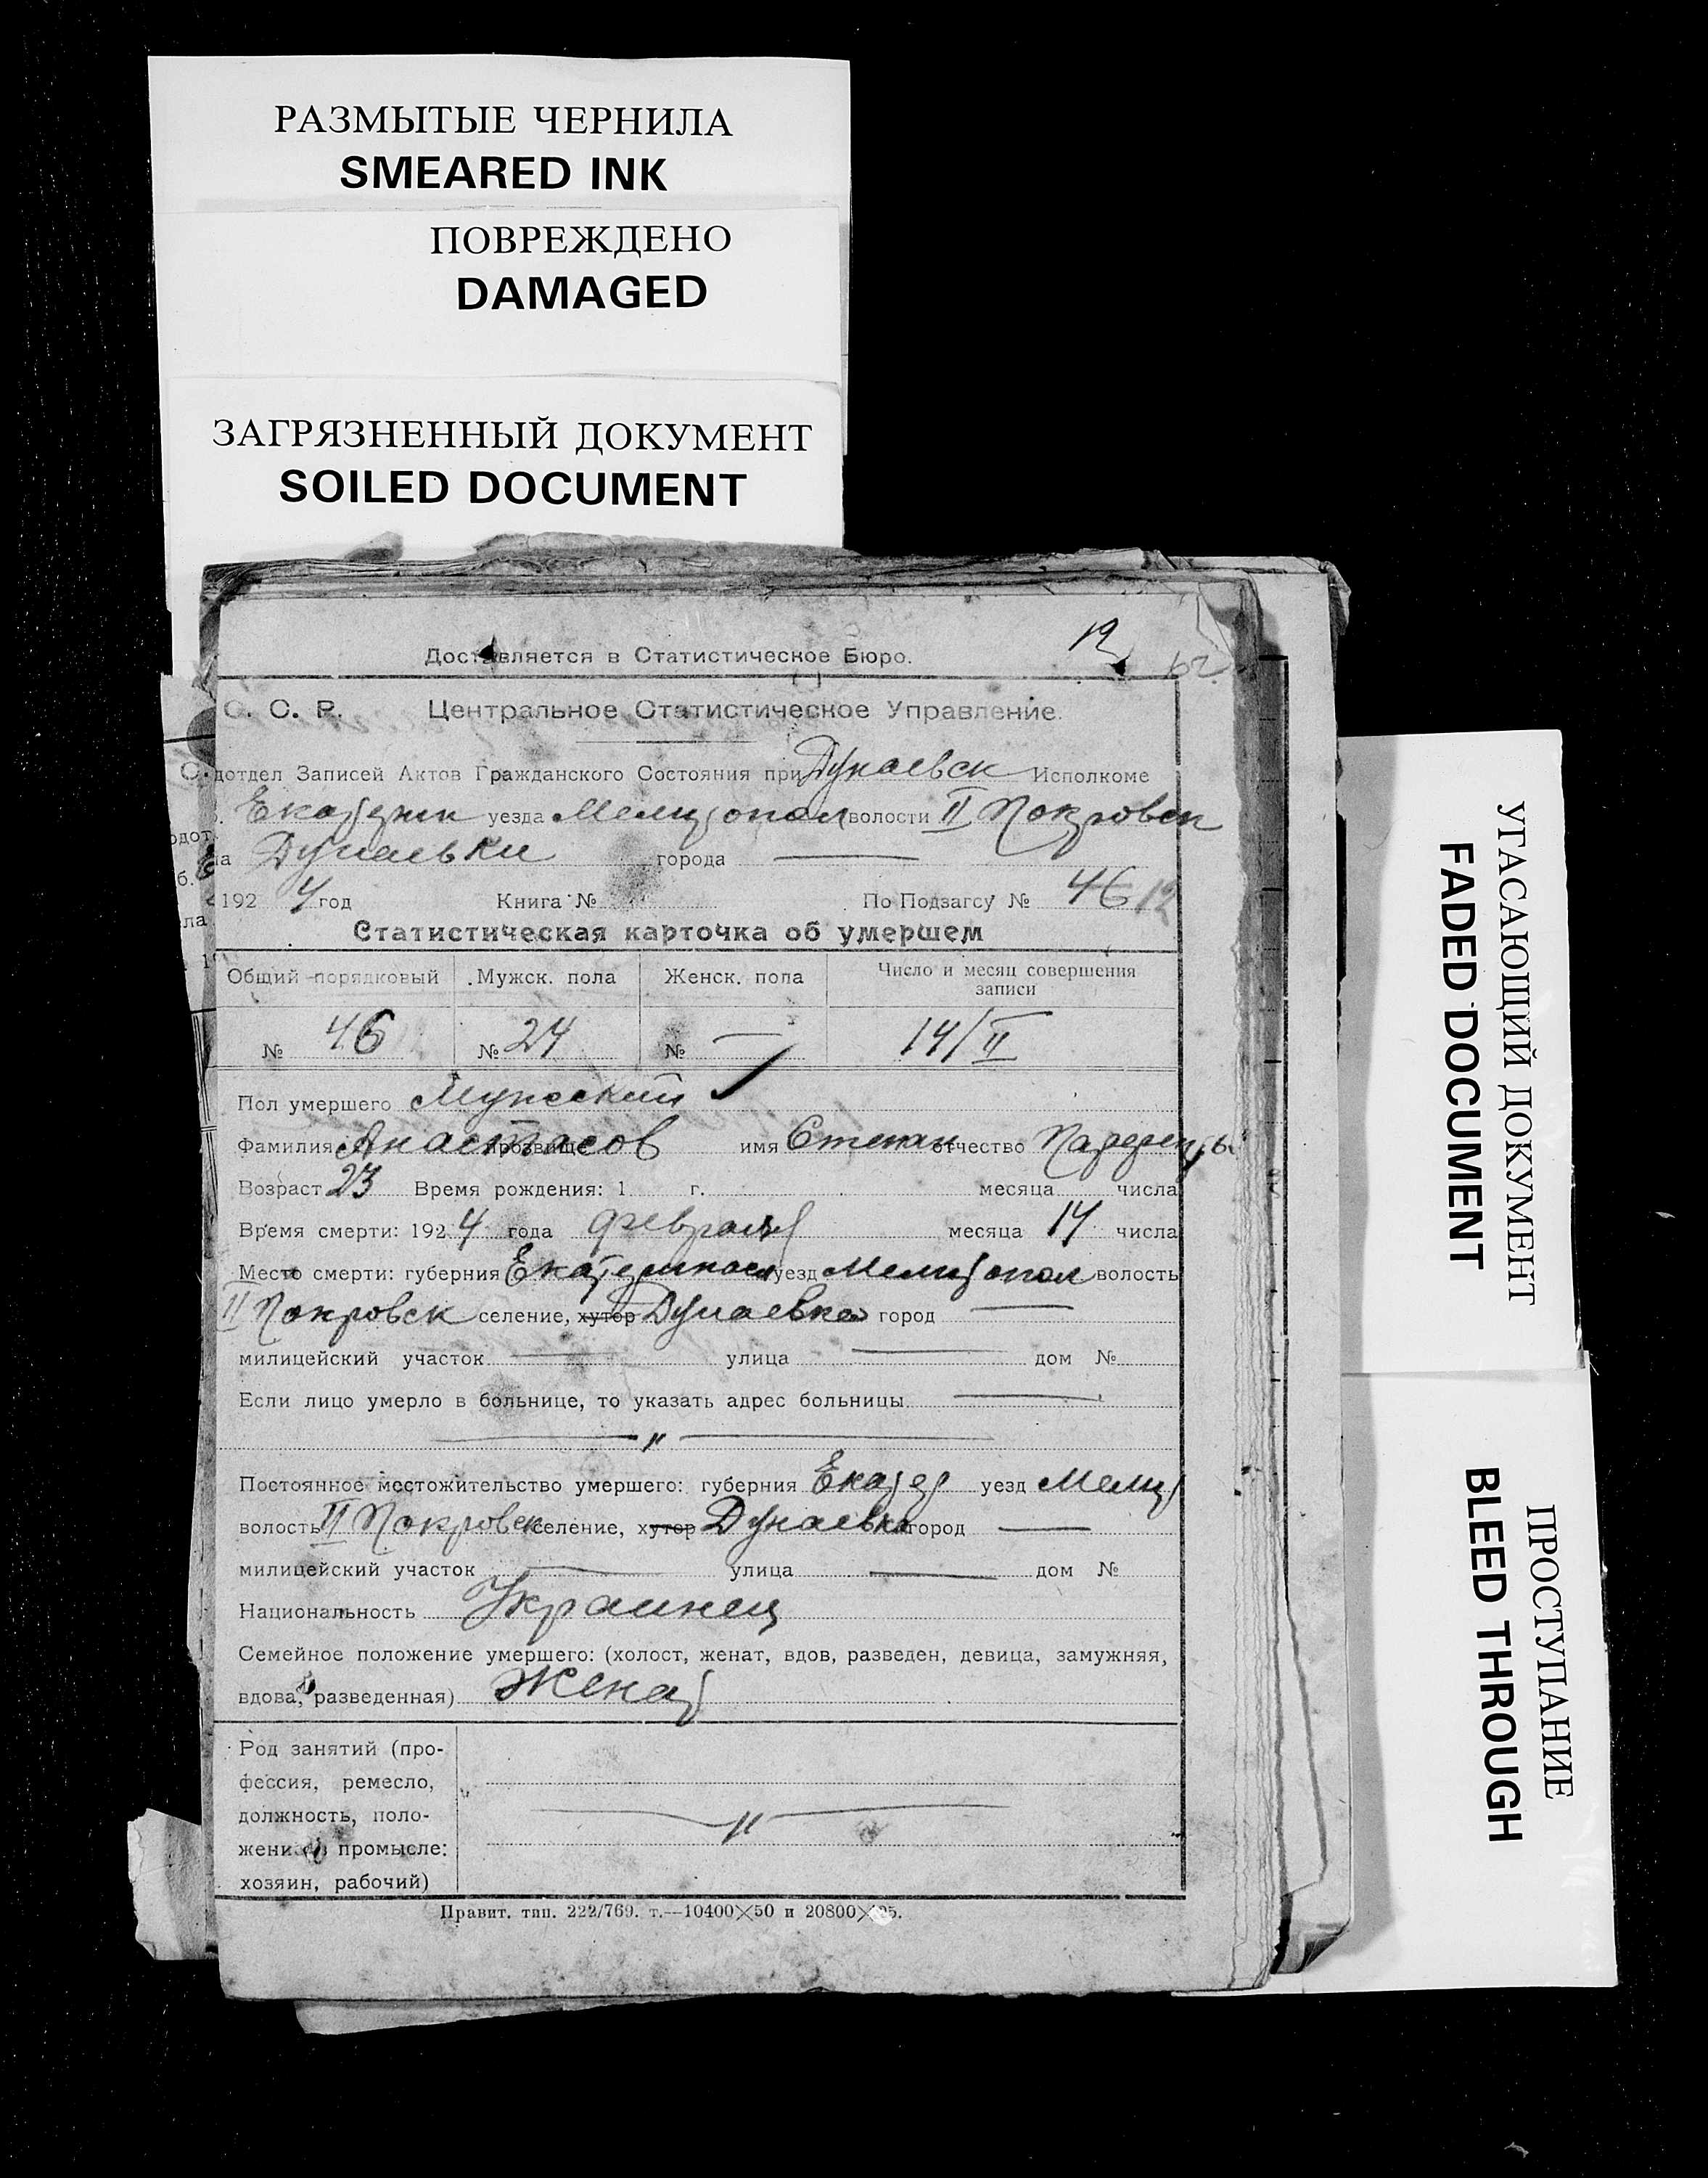 РАЗМЫТЫЕ ЧЕРНИЛА
SMEARED INK
ПОВРЕЖДЕНО
DAMAGED
ЗАГРЯЗНЕННЫЙ ДОКУМЕНТ
SOILED DOCUMENT
12
Доставляется в Статистическое Бюро.
С. С. Р. Центральное Статистическое Управление.
дотдел Записей Актов Гражданского Состояния при Дунаевск Исполкоме
Екатерин уезда Мелитопол волости II Покровск
ла Дунаевки города —
1924 год Книга № По Подзагсу № 46 12
Статистическая карточка об умершем
Общий порядковый Мужск. пола Женск. пола Число и месяц совершения записи
№ 46 № 24 № — 14/II
Пол умершего Мужской
Фамилия, прозвище Анастасов имя Степан отчество
Возраст 23 Время рождения: 1 г. месяца числа
Время смерти: 1924 года февраля месяца 14 числа
Место смерти: губерния Екатериносл уезд Мелитопол волость
II Покровск селение, хутор Дунаевка город —
милицейский участок — улица — дом №
Если лицо умерло в больнице, то указать адрес больницы —
— " —
Постоянное местожительство умершего: губерния Екатер уезд Мелит
волость II Покровск селение, хутор Дунаевка город —
милицейский участок — улица — дом №
Национальность Украинец
Семейное положение умершего: (холост, женат, вдов, разведен, девица, замужняя,
вдова, разведенная) Женат
Род занятий (про-
фессия, ремесло,
должность, поло-
жение в промысле:
хозяин, рабочий)
— " —
Правит. тип. 222/769. т.—10400×50 и 20800×
УГАСАЮЩИЙ ДОКУМЕНТ
FADED DOCUMENT
ПРОСТУПАНИЕ
BLEED THROUGH